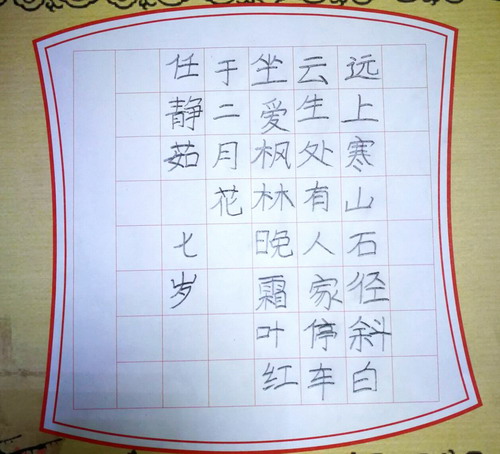 远上寒山石径斜白
云生处有人家停车
坐爱枫林晚霜叶红
于二月花
任静茹 七岁